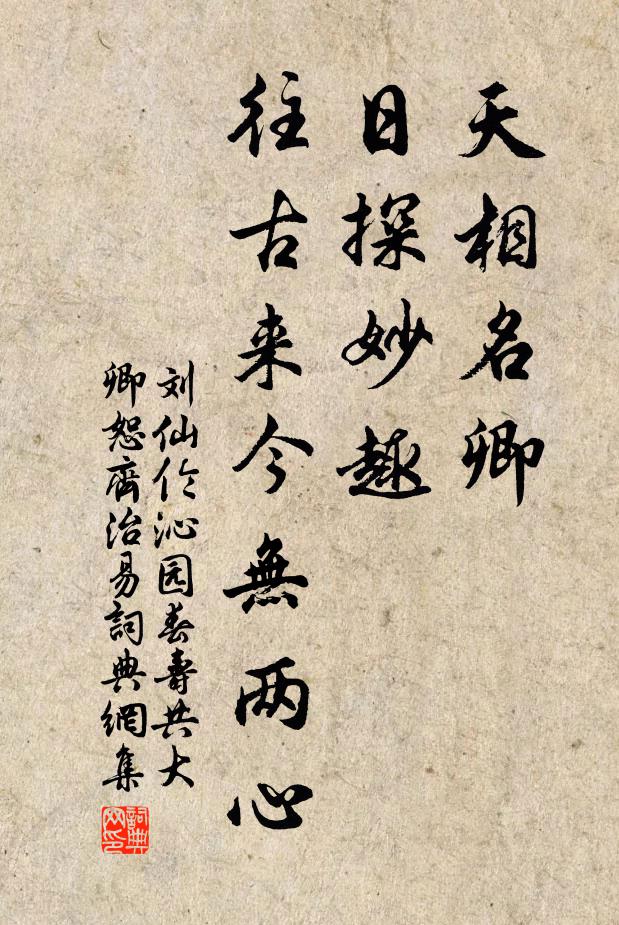 天相名卿
日探妙趣
往古来今無两心
刘仙伦沁园春寿共大
卿恕齊治易詞典網集
詞典网印